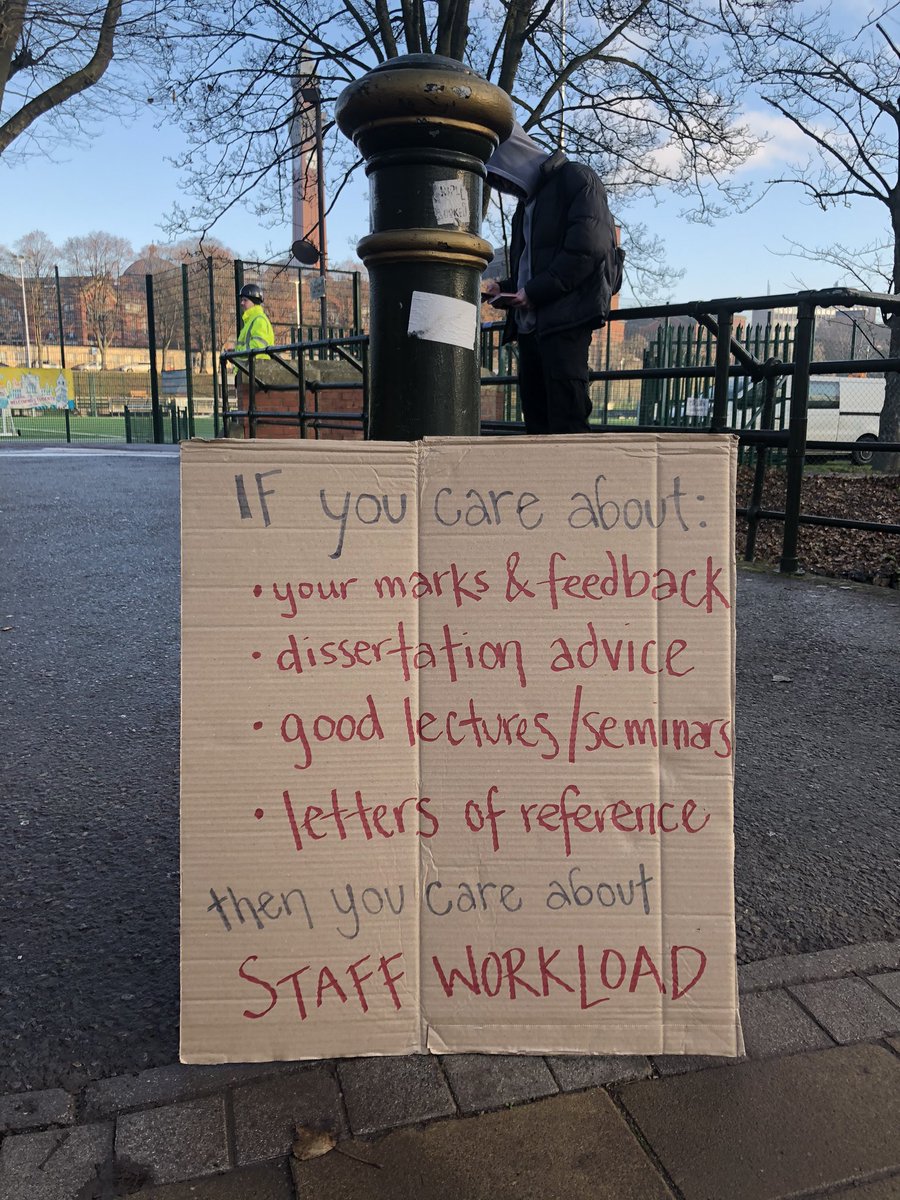 IF you care about:
• your marks & feedback
• dissertation advice
• good lectures/seminars
• letters of reference
then you care about
STAFF WORKLOAD